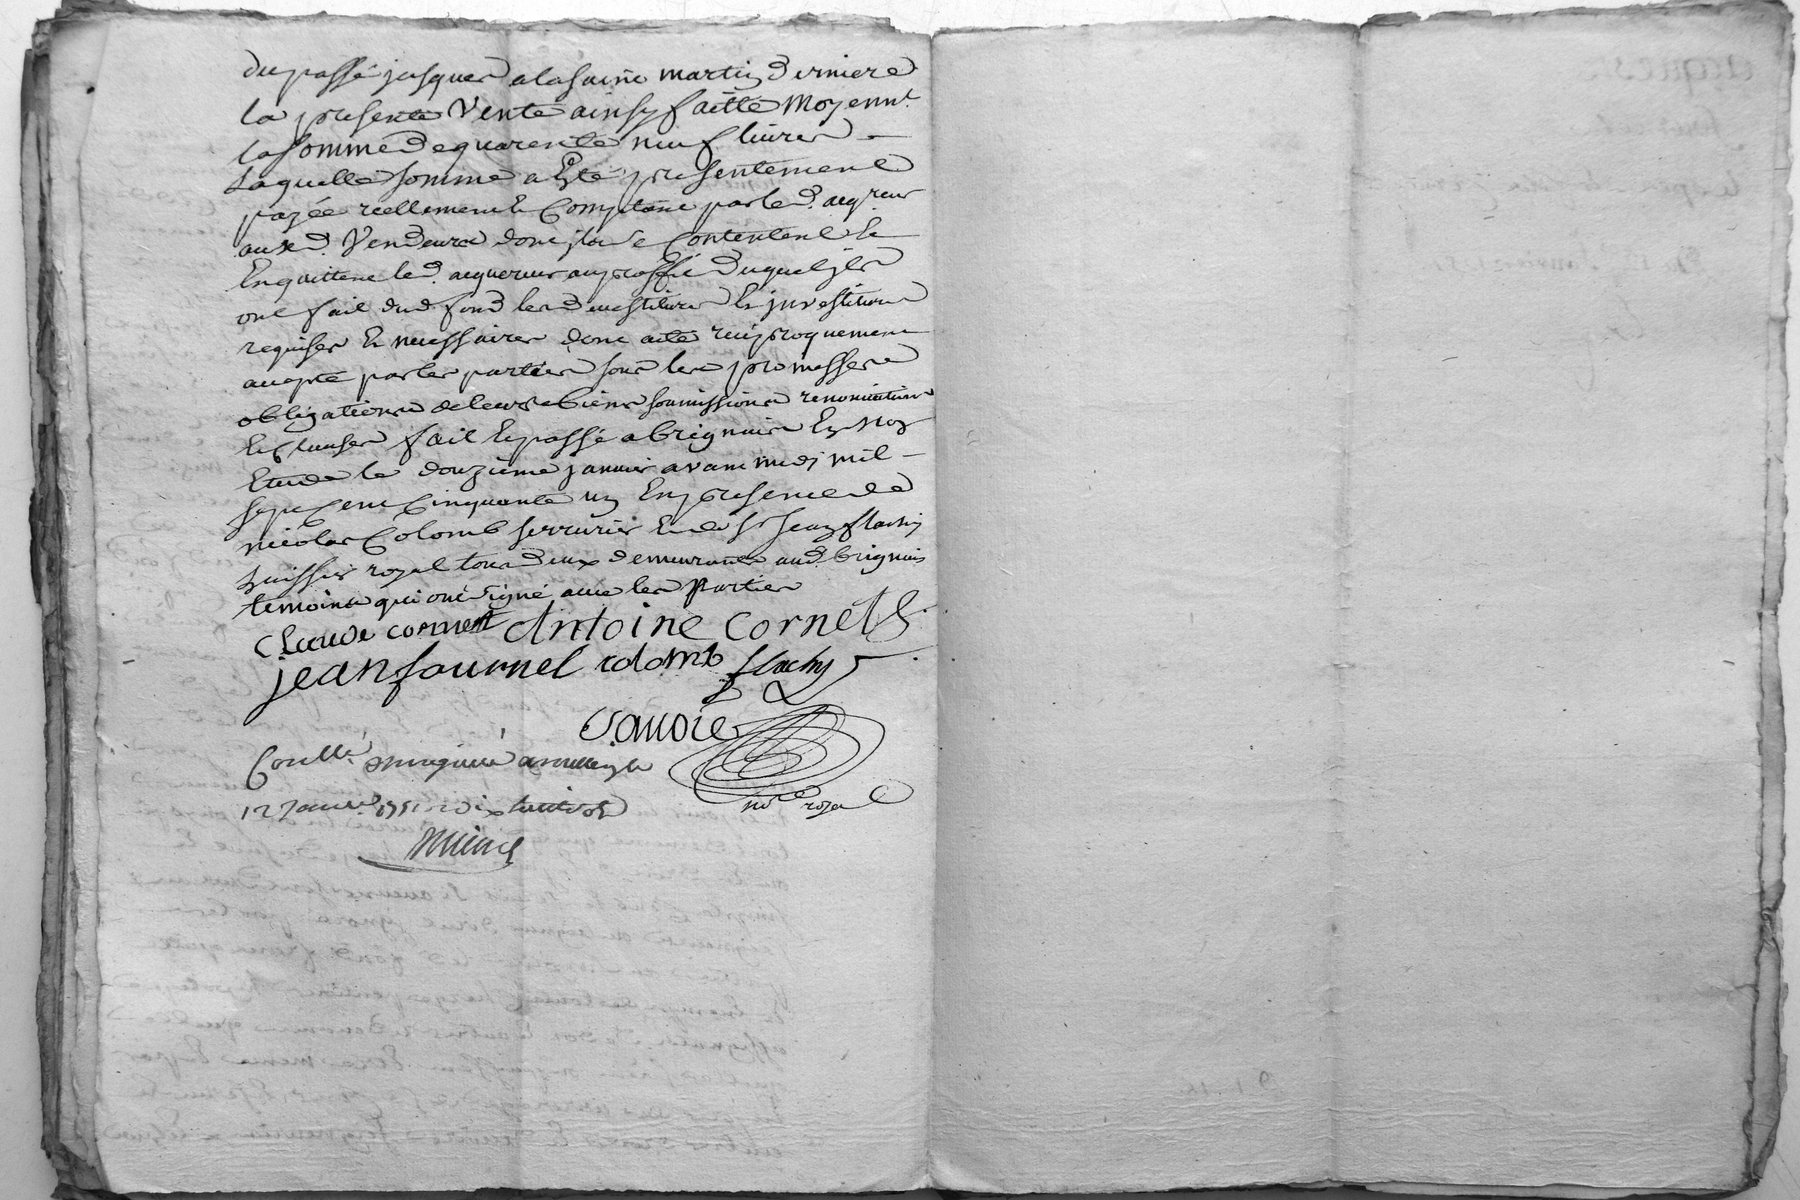 du passé jusques a la saint martin derniere
la presente Vente ainsy faitte moyennt
la somme de quarente neuf livres –
laquelle somme a Esté presentement
payée reellement Et Comptant par led. acqreur
auxd. Vendeurs dont ils se Contentent et
En quittent led. acquereur au proffit duquel ils
ont fait dud fond les devestitures Et investitures
requises Et necessaires dont acte reciproquement
accepté par les parties sous les promesses
obligations de leurs biens soumissions renonciations
Et Clauses fait Et passé a brignais En Noe
Etude le douzieme janvier avant midi mil –
sept Cent Cinquante un En presence de
nicolas Colomb serrurier Et de sr jean flachy
huissier royal tous deux demeurants aud. brignais
temoins qui ont signé avec les parties
Claude cornet Antoine cornet
jean fournel colomb flachy
Savoie
Conllé
12 janv. 1751 dix huit sols
nore royal